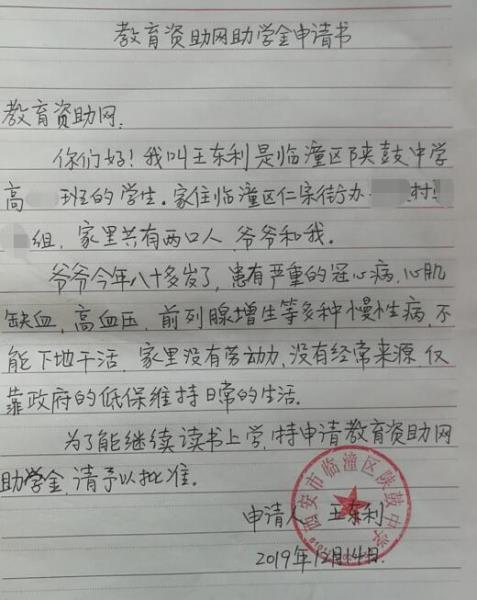 教育资助网助学金申请书
教育资助网:
你们好!我叫王东利是临潼区陕鼓中学
高 班的学生.家住临潼区仁宗街办 村
组,家里共有两口人,爷爷和我.
爷爷今年八十多岁了,患有严重的冠心病,心肌
缺血,高血压,前列腺增生等多种慢性病,不
能下地干活,家里没有劳动力,没有经常来源,仅
靠政府的低保维持日常的生活.
为了能继续读书上学,特申请教育资助网
助学金,请予以批准.
申请人 王东利
2019年12月14日.
西安市临潼区陕鼓中学